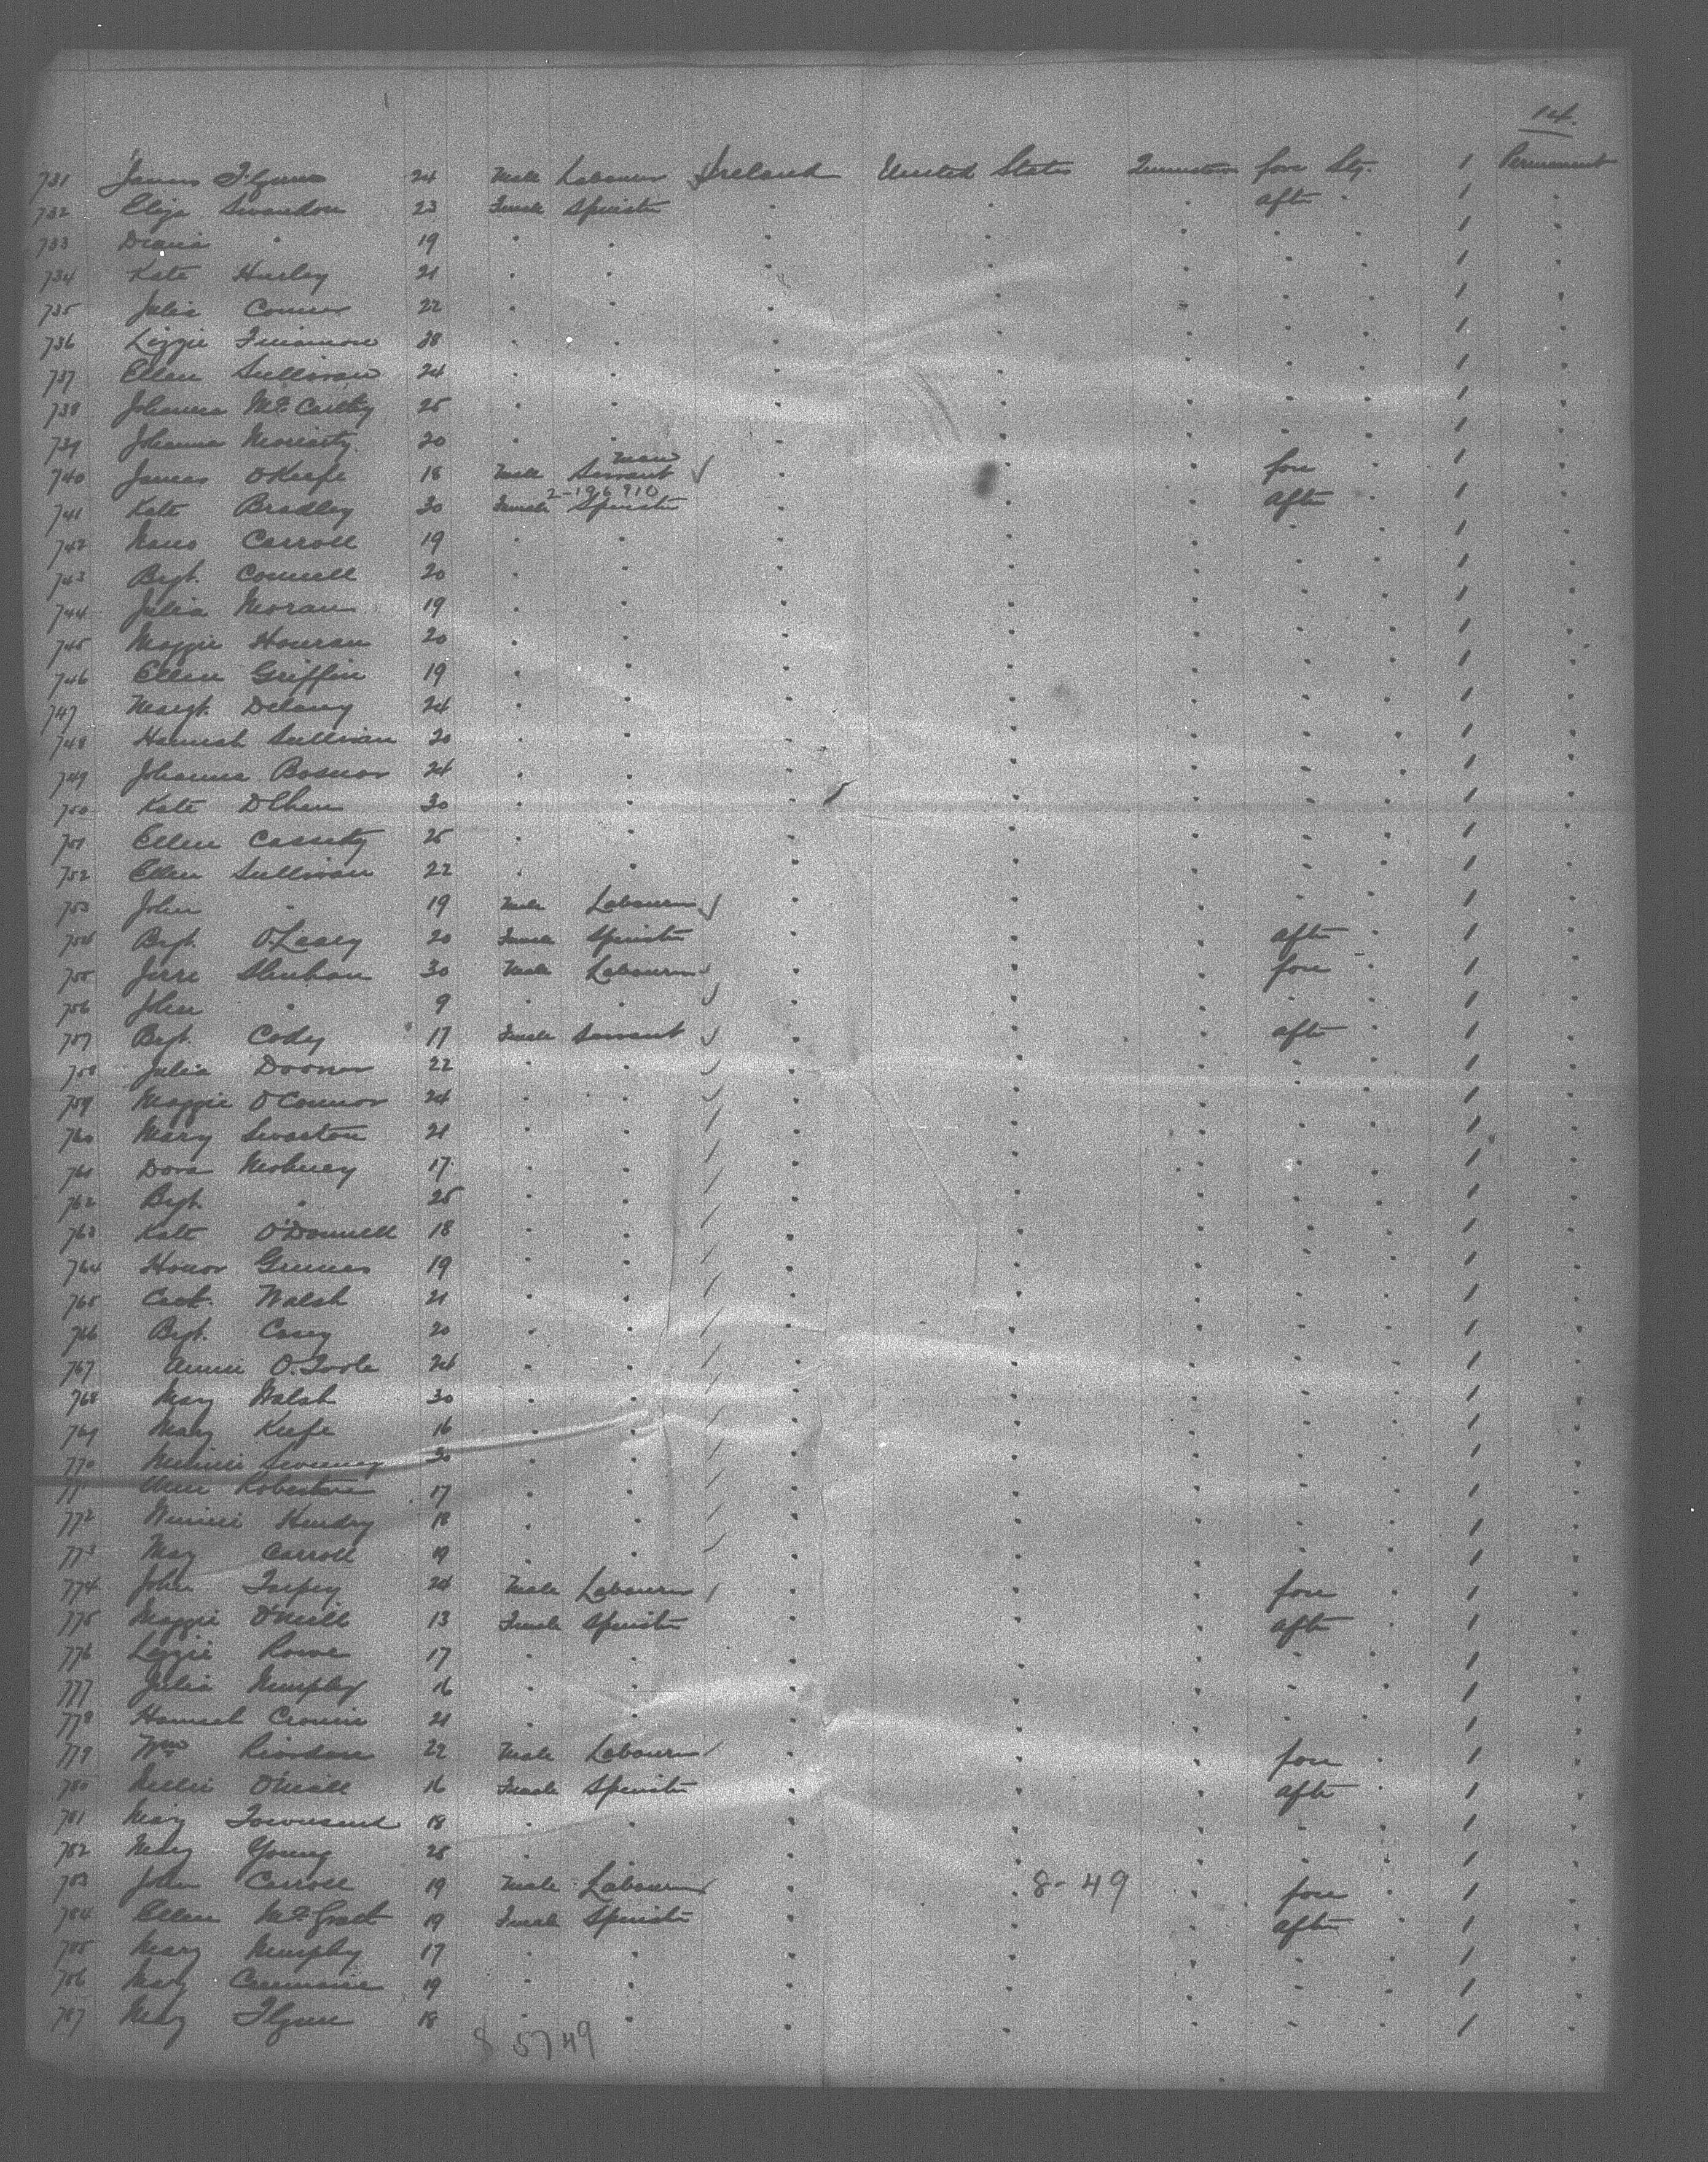 14.
731 James Flynn 24 Male Labourer Ireland United States fore Stg. 1 Permanent
732 Eliza 23 Female Spinster " " " aft " 1 "
733 " 19 " " " " " " " 1 "
734 Kate Hurley 21 " " " " " " " 1 "
735 Julia Connor 22 " " " " " " " 1 "
736 Lizzie 38 " " " " " " " 1 "
737 Ellen Sullivan 24 " " " " " " " 1 "
738 Johanna McCarthy 25 " " " " " " " 1 "
739 Johanna Moriarty 20 " " " " " " " 1 "
740 James O'Keefe 18 Male Servant " " " fore 1 "
2-196910
741 Kate Bradley 30 Female Spinster " " " aft " 1 "
742 Carroll 19 " " " " " " " 1 "
743 Bgt. Connell 20 " " " " " " " 1 "
744 Julia Moran 19 " " " " " " " 1 "
745 Maggie Houran 20 " " " " " " " 1 "
746 Ellen Griffin 19 " " " " " " " 1 "
747 Margt. Delany 24 " " " " " " " 1 "
748 Hannah Sullivan 20 " " " " " " " 1 "
749 Johanna 24 " " " " " " " 1 "
750 Kate 30 " " " " " " " 1 "
751 Ellen Cassidy 25 " " " " " " " 1 "
752 Ellen Sullivan 22 " " " " " " " 1 "
753 John " 19 Male Labourer " " " " " 1 "
754 Bgt. O'Leary 20 Female Spinster " " " aft " 1 "
755 Jerre Shuhan 30 Male Labourer " " " fore " 1 "
756 John " 9 " " " " " " " 1 "
757 Bgt. Cody 17 Female Servant " " " aft " 1 "
758 Julia 22 " " " " " " " 1 "
759 Maggie O'Connor 24 " " " " " " " 1 "
760 Mary 21 " " " " " " " 1 "
761 Dora 17 " " " " " " " 1 "
762 Bgt. " 25 " " " " " " " 1 "
763 Kate O'Donnell 18 " " " " " " " 1 "
764 Honor 19 " " " " " " " 1 "
765 Cath. Walsh 21 " " " " " " " 1 "
766 Bgt. Casey 20 " " " " " " " 1 "
767 Annie O'Toole 24 " " " " " " " 1 "
768 Mary Walsh 30 " " " " " " " 1 "
769 Mary Keefe 16 " " " " " " " 1 "
770 Minnie Sweeney 30 " " " " " " " 1 "
771 17 " " " " " " " 1 "
772 Winnie Hendry 18 " " " " " " " 1 "
773 May Carroll 19 " " " " " " " 1 "
774 John Tarpey 24 Male Labourer " " " fore " 1 "
775 Maggie O'Neill 13 Female Spinster " " " aft " 1 "
776 Lizzie Rowe 17 " " " " " " " 1 "
777 Julia Murphy 16 " " " " " " " 1 "
778 Hannah Cronin 21 " " " " " " " 1 "
779 Wm Riordan 22 Male Labourer " " " fore " 1 "
780 Nellie O'Neill 16 Female Spinster " " " aft " 1 "
781 Mary Townsend 18 " " " " " " " 1 "
782 Mary Young 25 " " " " " " " 1 "
783 John Carroll 19 Male Labourer " " 8-49 " fore " 1 "
784 Ellen McGrath 19 Female Spinster " " " aft " 1 "
785 Mary Murphy 17 " " " " " " " 1 "
786 May 19 " " " " " " " 1 "
787 May Flynn 18 " " " " " " " 1 "
8 5749